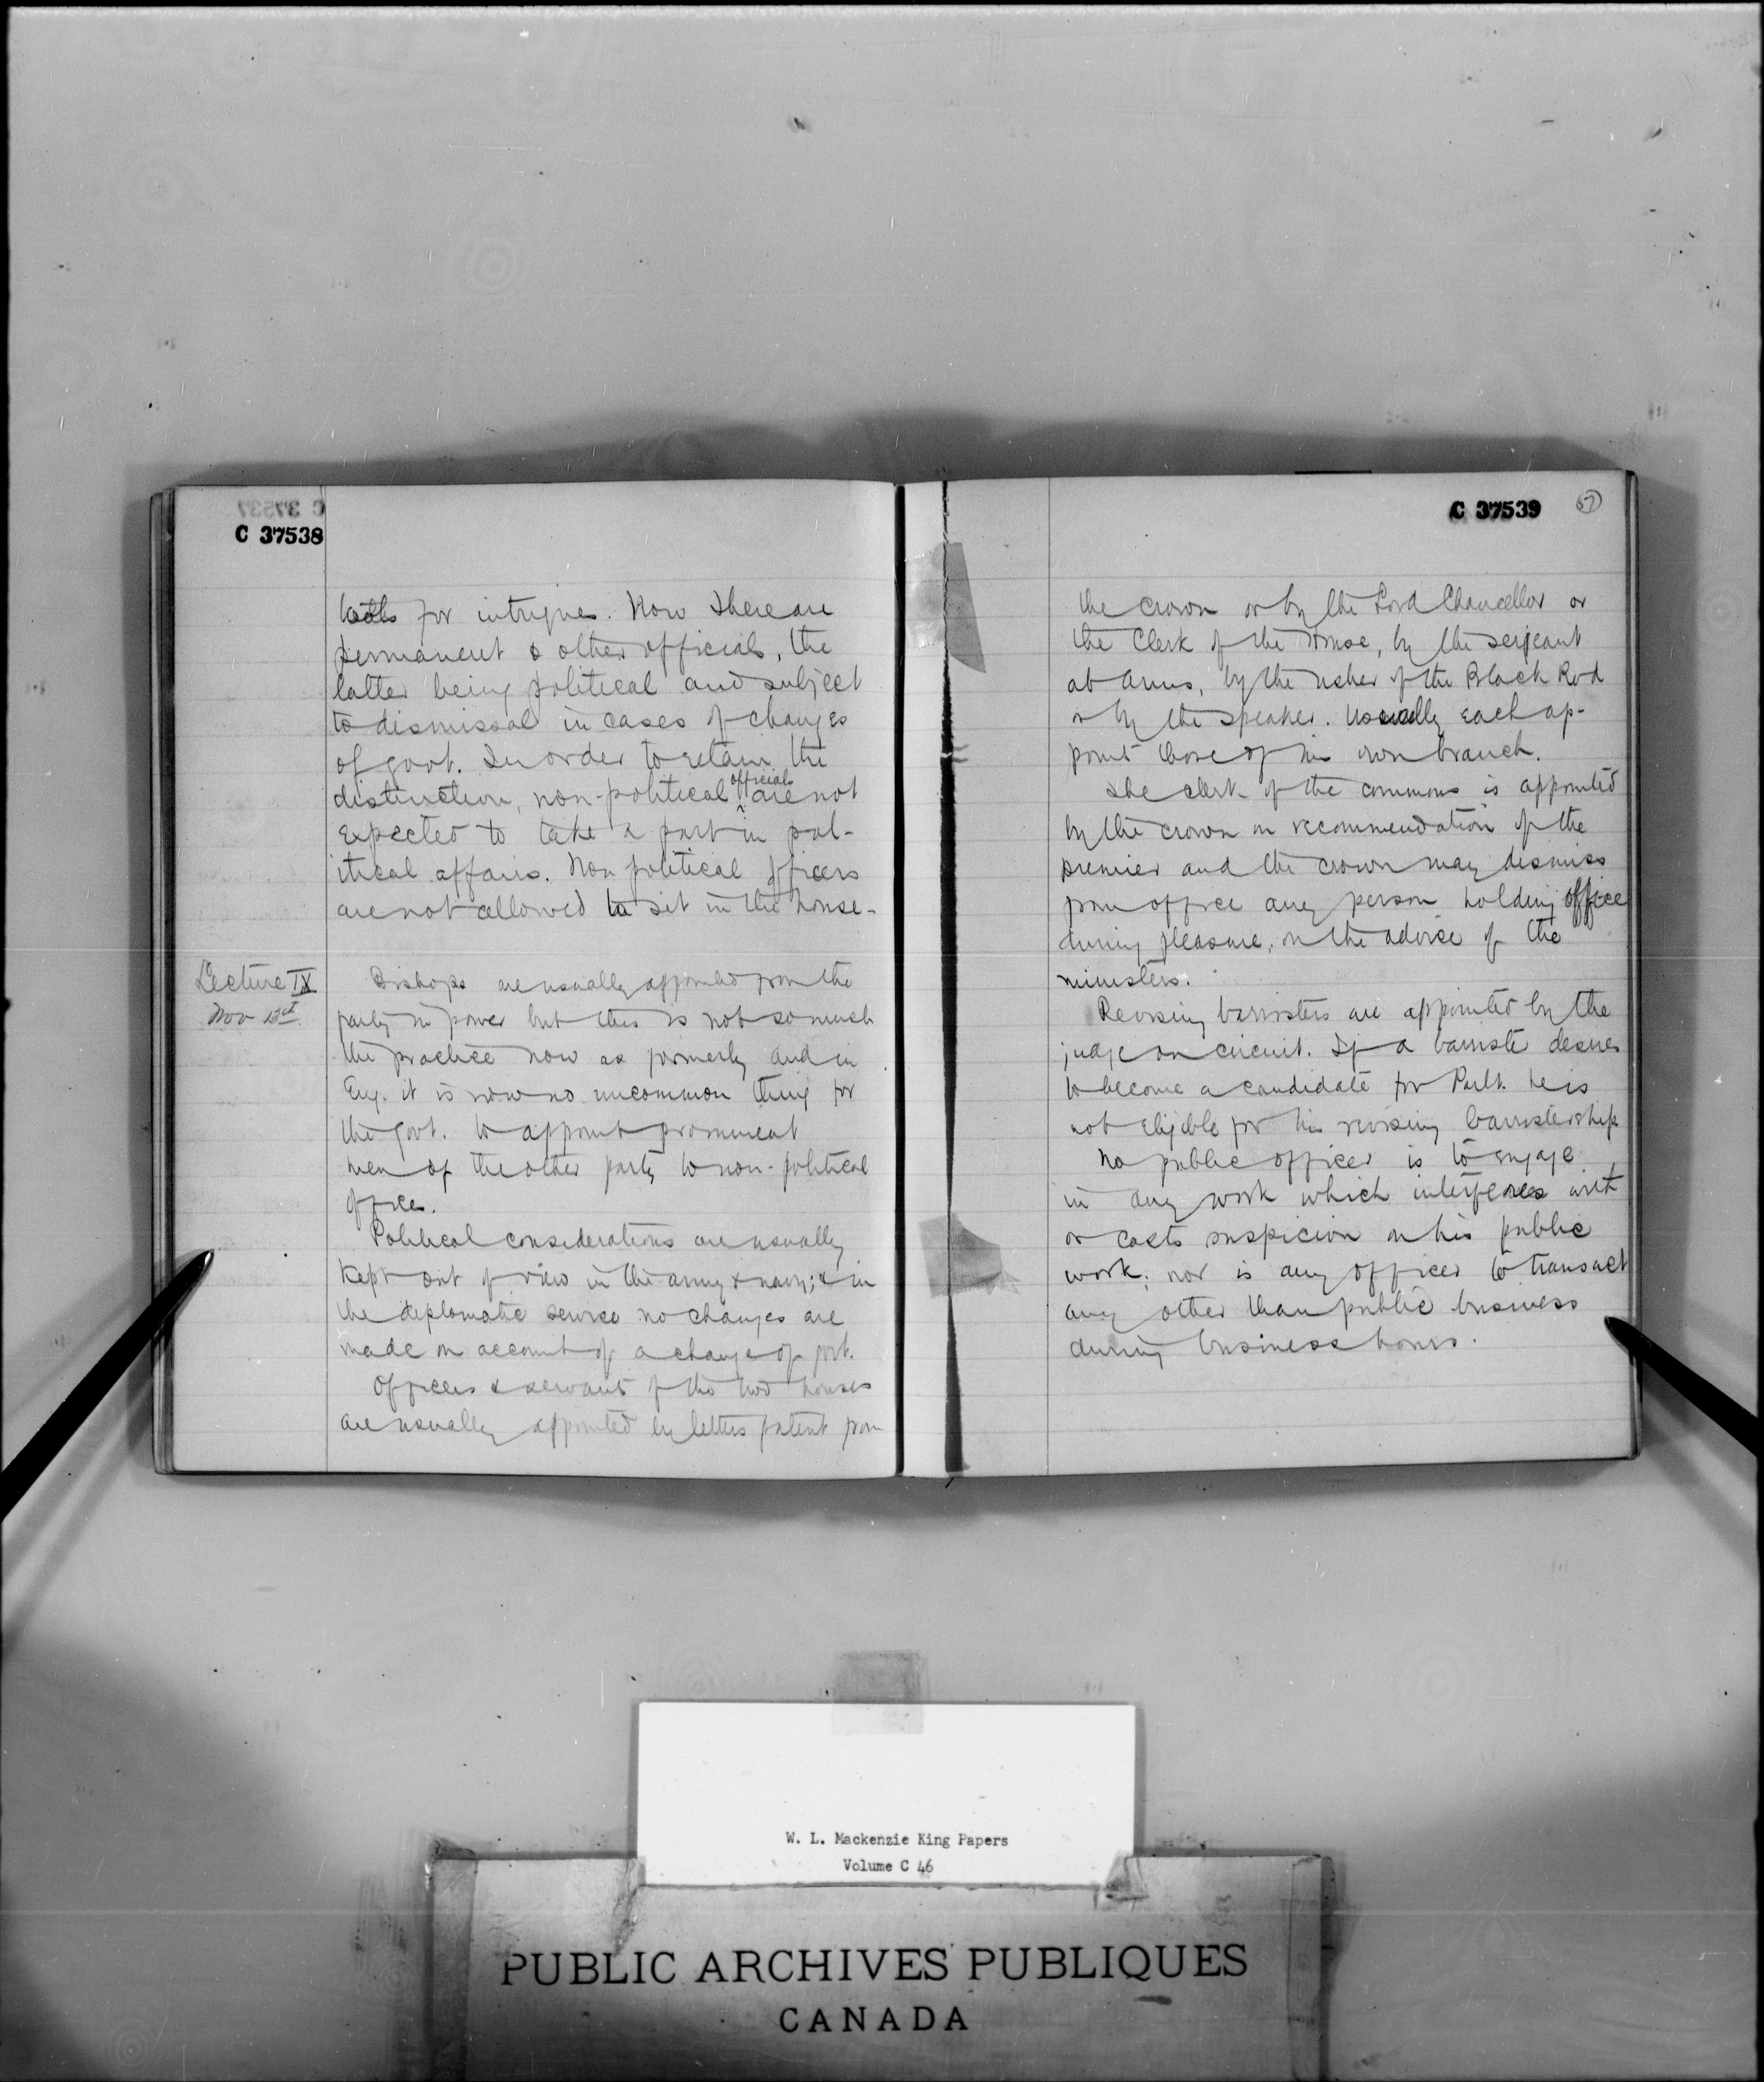 C 37537
C 37538
for intrigues. Now there are
permanent & other officials, the
latter being political and subject
to dismissal in cases of changes
of govt. In order to retain the
distinction, non-political officials are not
expected to take a part in pol-
itical affairs. Non political officers
are not allowed to sit in the house.
Lecture IX
Nov 13th
Bishops are usually appointed from the
party in power but this is not so much
the practice now as formerly and in
Eng. it is now no uncommon thing for
the govt. to appoint prominent
men of the other party to non-political
offices.
Political considerations are usually
kept out of view in the army & navy; & in
the diplomatic service no changes are
made on account of a change of govt.
Officers & servants of the two houses
are usually appointed by letters patent from
C 37539
57
the crown or by the Lord Chancellor or
the Clerk of the House, by the sergeant
at Arms, by the usher of the Black Rod
or by the speaker. Usually each ap-
point those of his own branch.
The clerk of the commons is appointed
by the crown on recommendation of the
premier and the crown may dismiss
from office any person holding office
during pleasure, on the advice of the
ministers.
Revising barristers are appointed by the
judge on circuit. If a barrister desires
to become a candidate for Parlt. he is
not eligible for his revising barristership
No public officer is to engage
in any work which interferes with
or casts suspicion on his public
work; nor is any officer to transact
any other than public business
during business hours.
W. L. Mackenzie King Papers
Volume C 46
PUBLIC ARCHIVES PUBLIQUES
CANADA